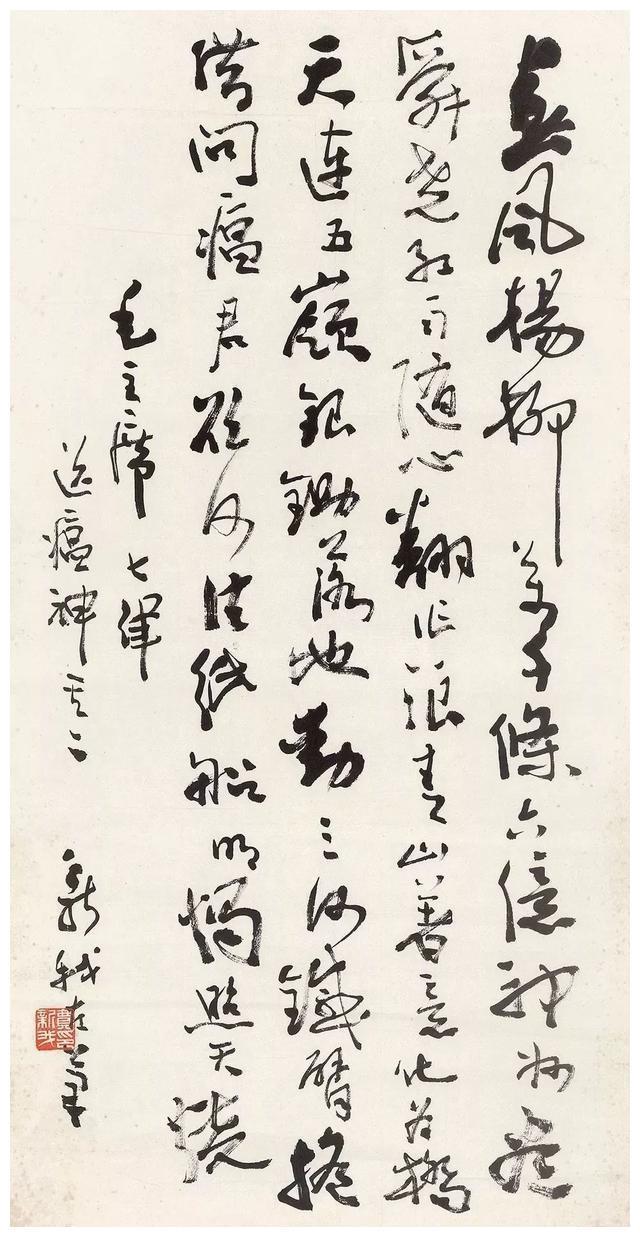 春風楊柳萬千條六億神州盡
舜堯紅雨隨心翻作浪青山著意化为橋
天連五嶺銀鋤落地動三河鐵臂搖
借問瘟君欲何往紙船明燭照天燒
毛主席七律
送瘟神其二 新我左筆
費新我印